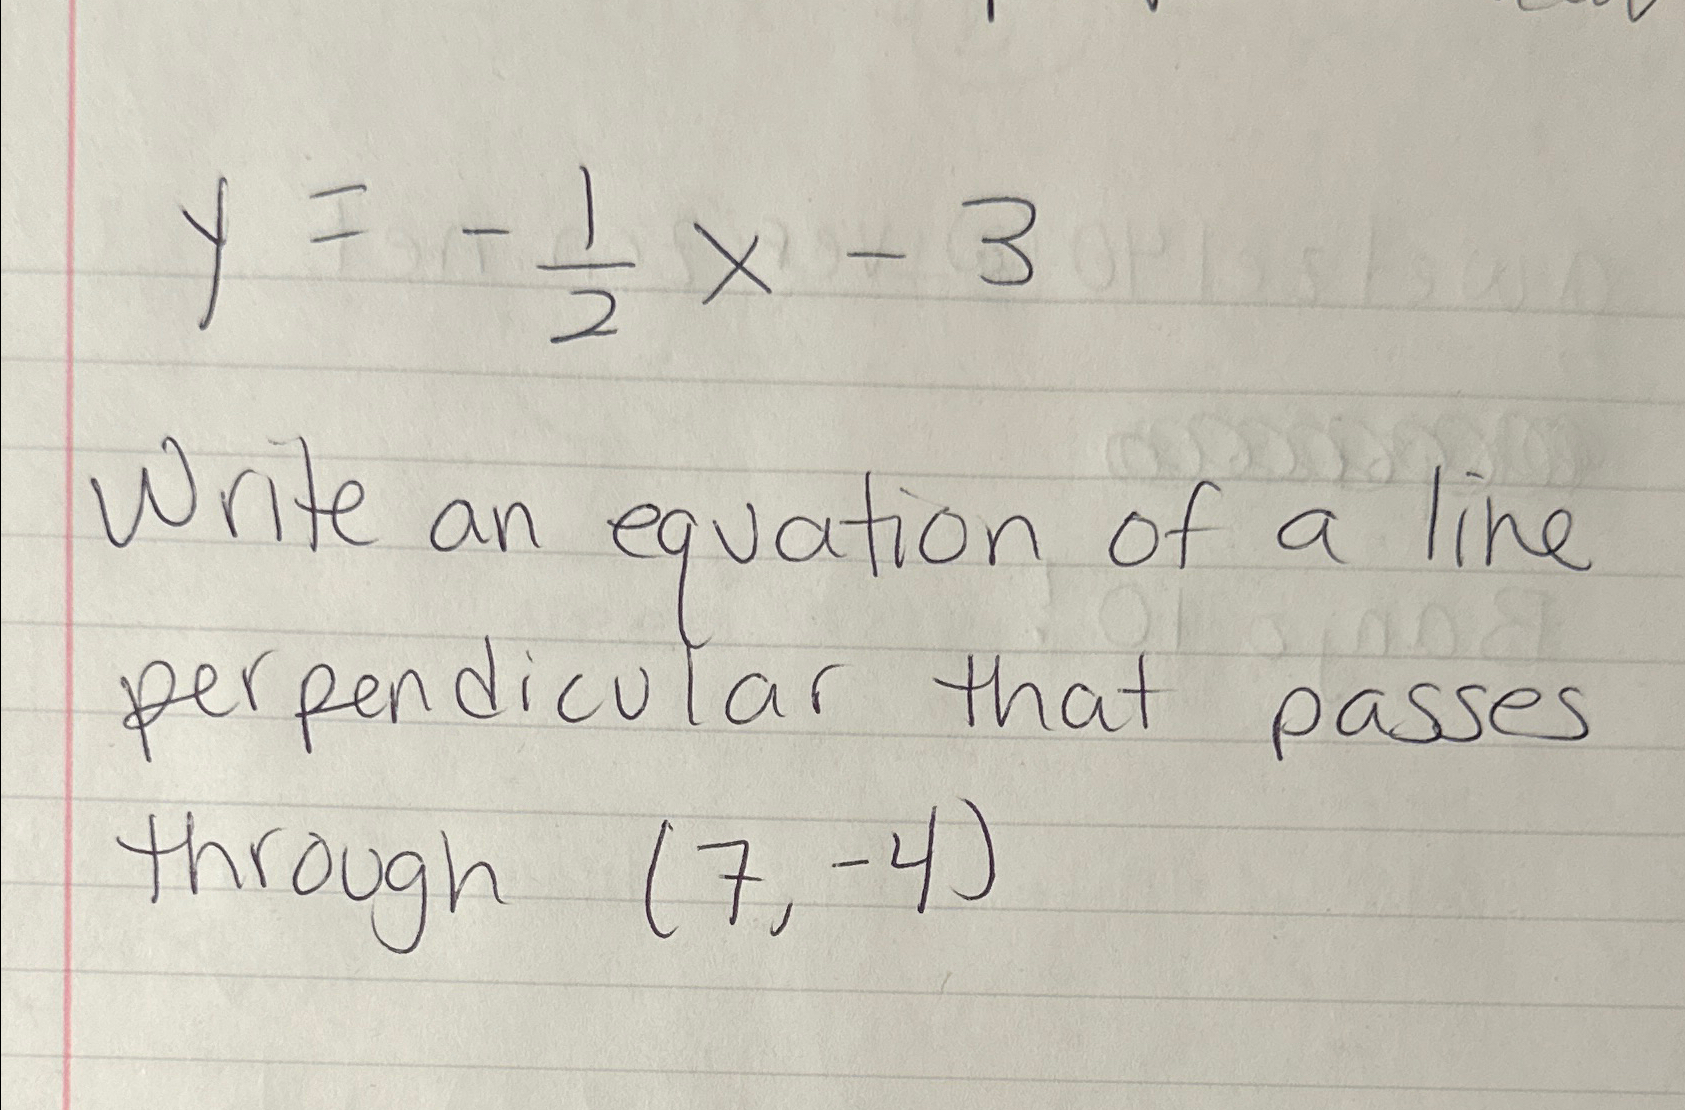 y = -1/2 x - 3
Write an equation of a line
perpendicular that passes
through (7, -4)